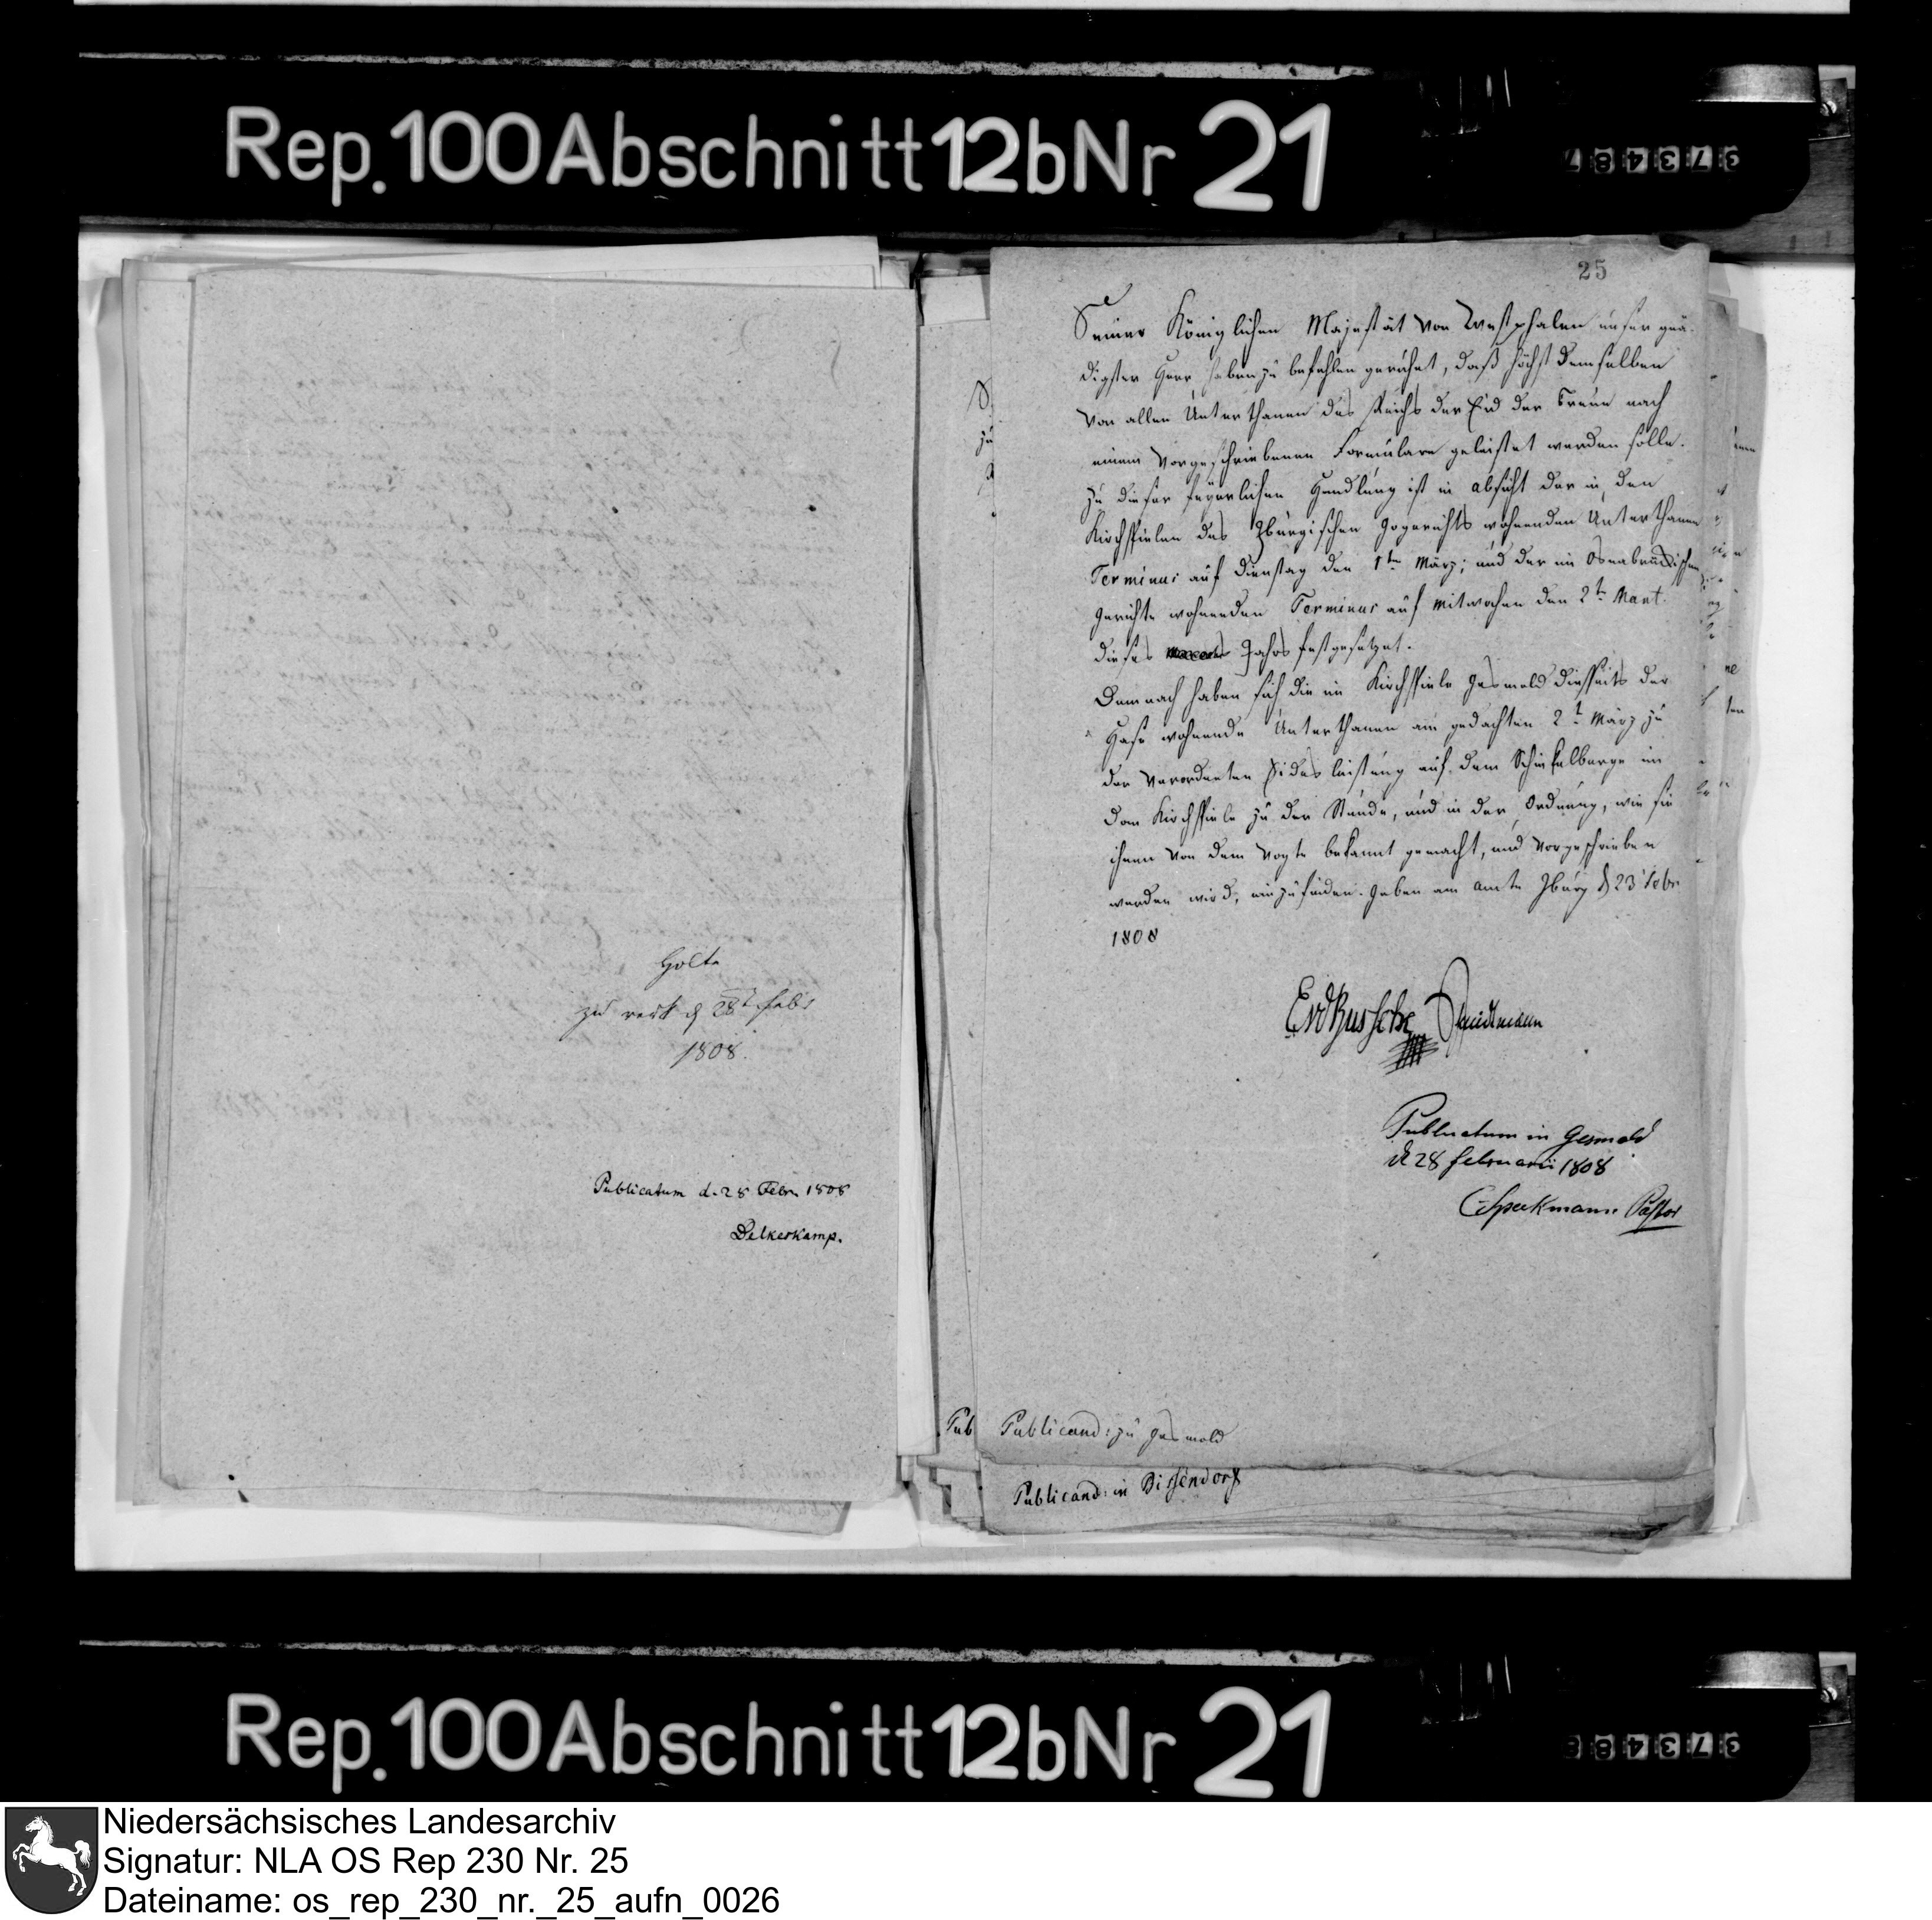 Rep. 100 Abschnitt 12b Nr 21
Holte
zu verk d 28t Febr
1808.
Publicatum d. 28 Febr. 1808
Delkeskamp.
25
Seiner Königlichen Majestät von Westphalen unser gnä-
digster Herr haben zu befehlen geruhet, daß höchst demselben
von allen Unterthanen des Reichs der Eid der Treue nach
einem vorgeschriebenen Formulare geleistet werden solle.
Zu dieser feyerlichen Handlung ist in absicht der in den
Kirchspielen des Iburgischen Gogerichts wohnenden Unterthanen
Terminus auf Dienstag den 1ten März; und der im Osnabrückischen
Gerichte wohnenden Terminus auf Mitwochen den 2ten
dieses Jahrs festgesetzet.
Demnach haben sich die im Kirchspiele Gesmold diesseits der
Hase wohnende Unterthanen am gedachten 2t März zu
der verordneten Eides leistung auf dem Schinkelberge im
Dom Kirchspiele zu der Stunde, und in der Ordnung, wie sie
ihnen von dem Vogte bekannt gemacht, und vorgeschrieben
werden wird, einzufinden. Geben am Amte Iburg d 23 Febr
1808
EvdBussche Stuedemann
Publicatum in Gesmold
d 28 februarii 1808
Speckmann Pastor
Pub
Publicand: zu Gesmold
Publicand: in Bissendorf
Rep. 100 Abschnitt 12b Nr 21
Niedersächsisches Landesarchiv
Signatur: NLA OS Rep 230 Nr. 25
Dateiname: os_rep_230_nr._25_aufn_0026